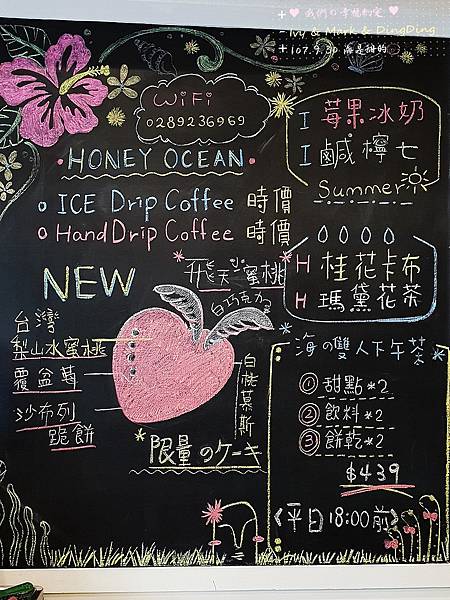 我們の幸福約定
Ivy & Mark & DingDing
107.9.30 海是甜的
WiFi
0289236969
HONEY OCEAN
ICE Drip Coffee 時價
Hand Drip Coffee 時價
I 莓果冰奶
I 鹹檸七
Summer
H 桂花卡布
H 瑪黛花茶
NEW
飛天蜜桃
白巧克力
台灣
梨山水蜜桃
覆盆莓
沙布列
脆餅
白桃慕斯
*限量のケーキ
海の雙人下午茶
①甜點*2
②飲料*2
③餅乾*2
$439
《平日18:00前》